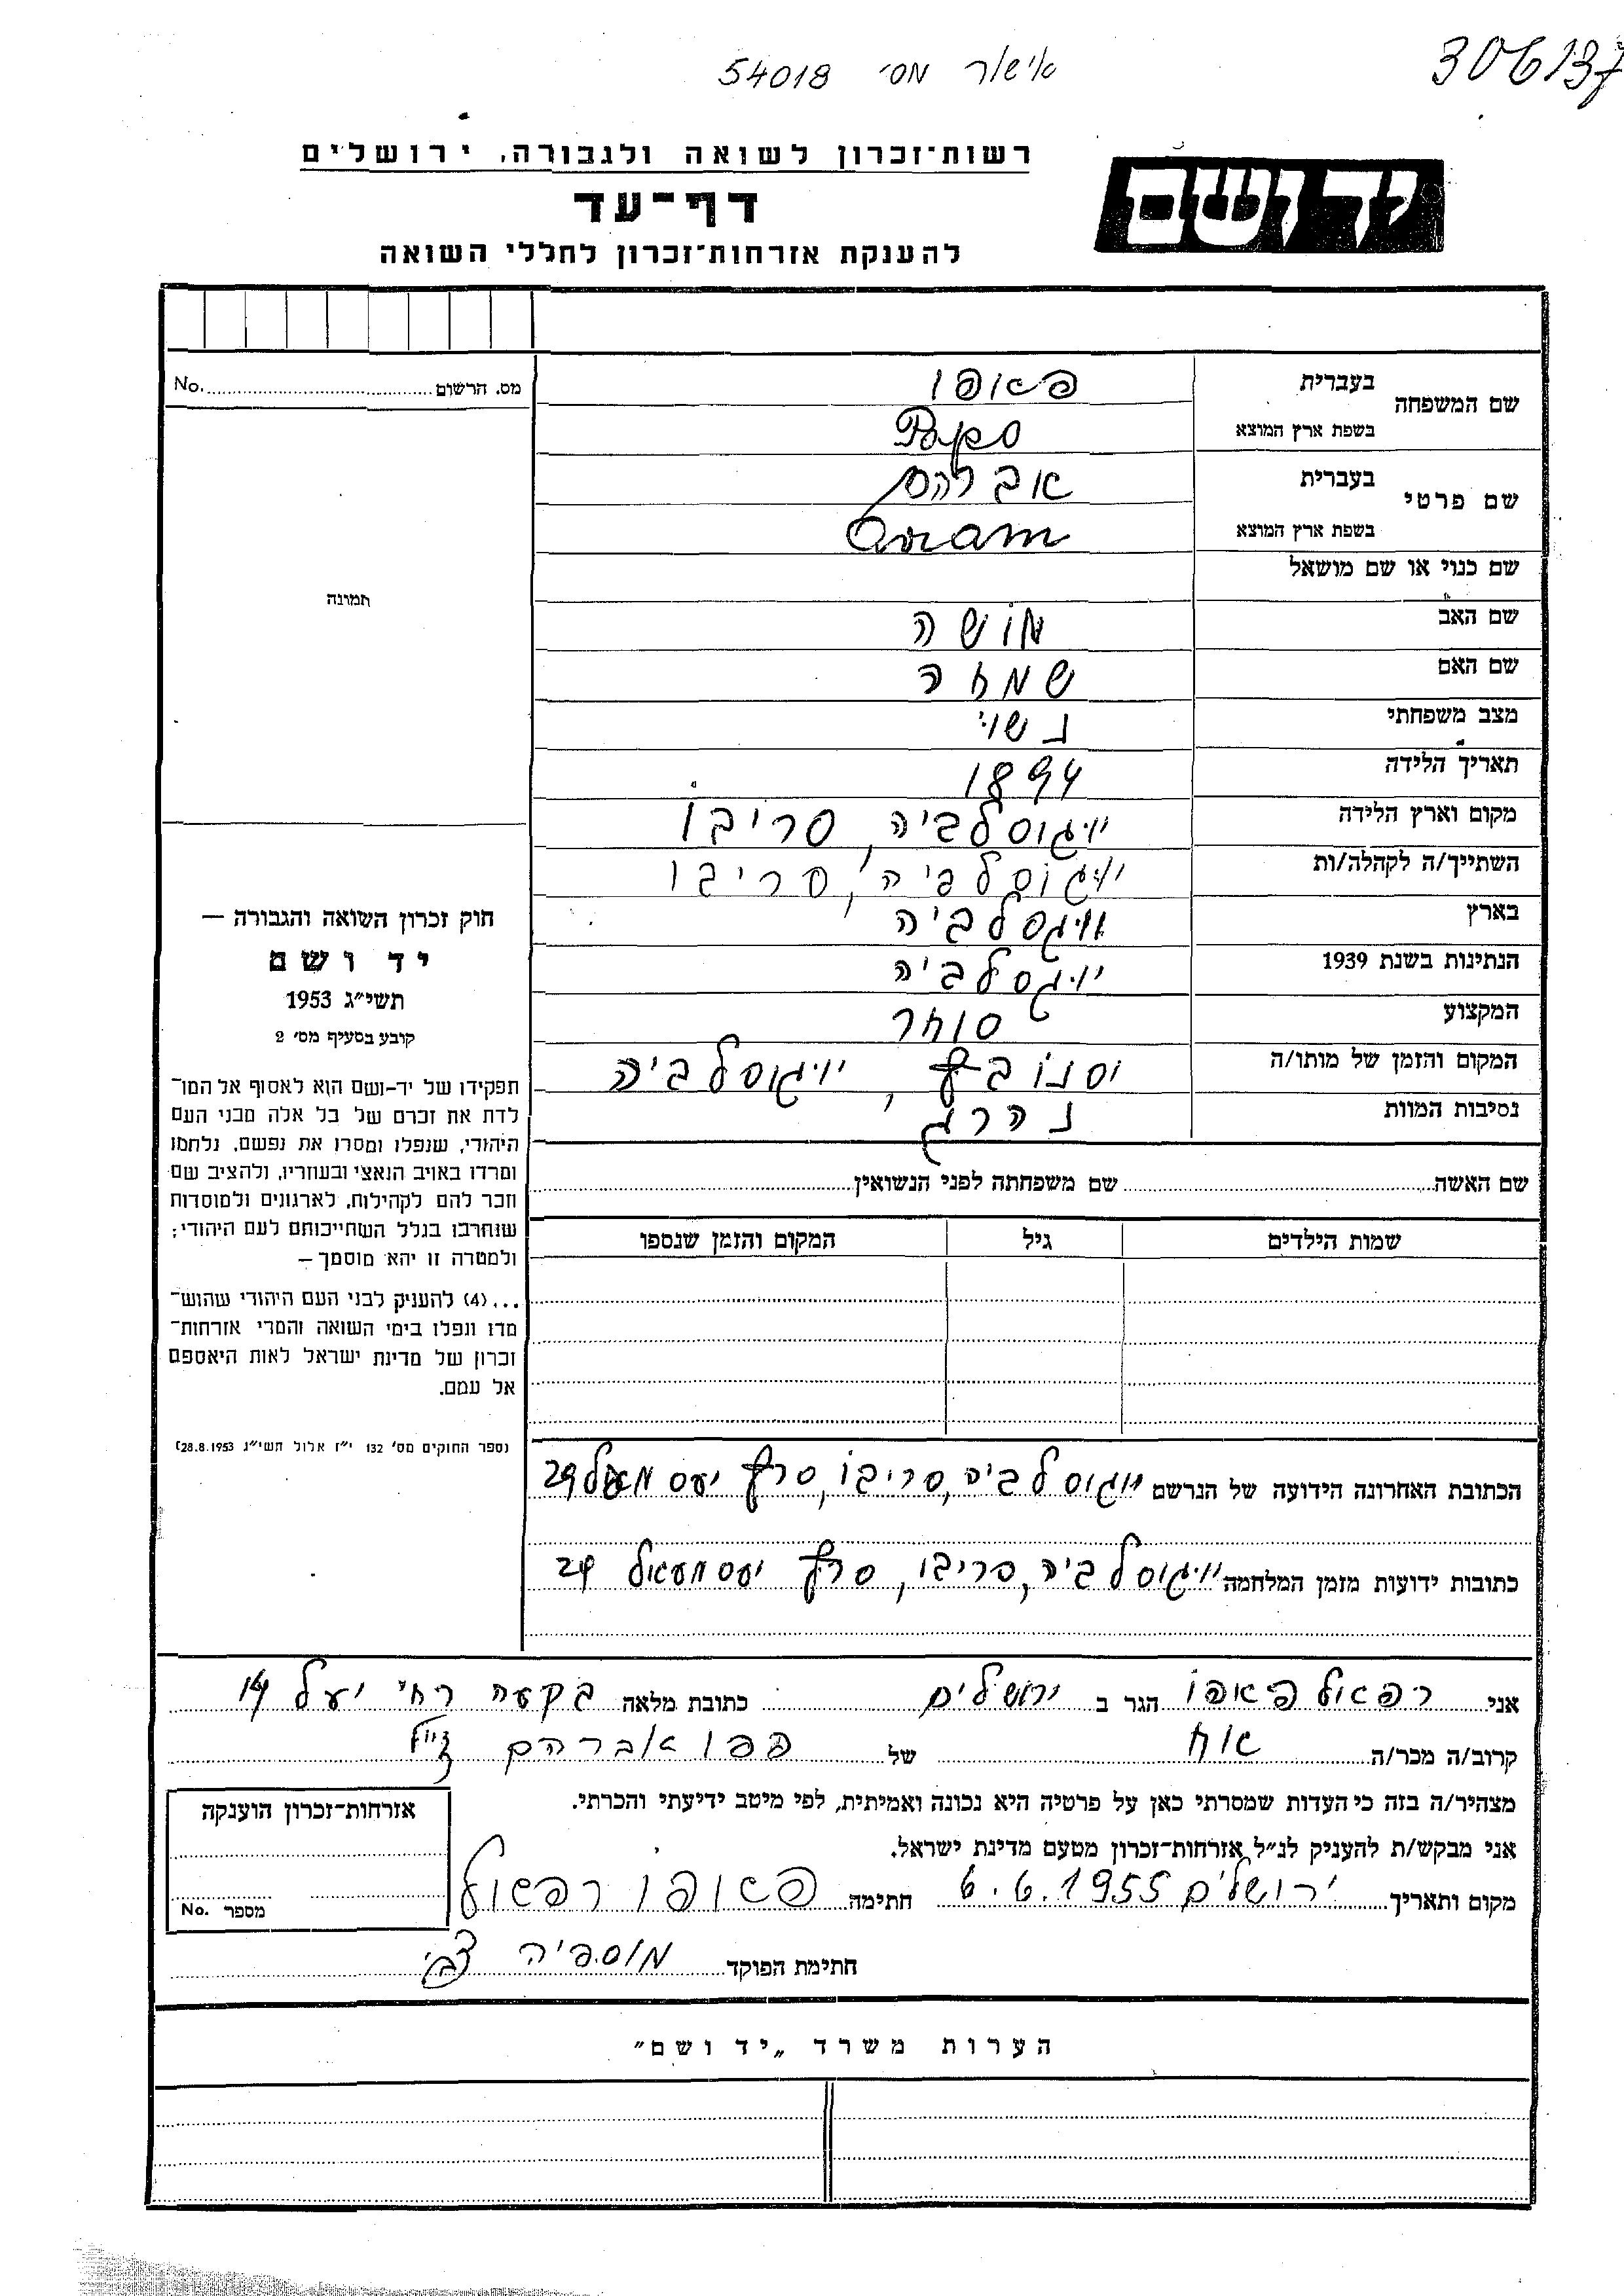 306137
אישור מס׳ 54018
יד ושם
רשות־זכרון לשואה ולגבורה, ירושלים
דף־עד
להענקת אזרחות־זכרון לחללי השואה
מס. הרשום No.
תמונה
שם המשפחה בעברית פאופו
בשפת ארץ המוצא Papo
שם פרטי בעברית אברהם
בשפת ארץ המוצא Avram
שם כנוי או שם מושאל
שם האב מושה
שם האם שמחה
מצב משפחתי נשוי
תאריך הלידה 1894
מקום וארץ הלידה יויגוסלביה, סריבו
השתייך/ה לקהלה/ות יויגוסלביה, סריבו
בארץ יויגסלביה
הנתינות בשנת 1939 יויגסלביה
המקצוע סוחר
המקום והזמן של מותו/ה יויגוסלביה
נסיבות המוות נהרג
שם האשה שם משפחתה לפני הנשואין
שמות הילדים גיל המקום והזמן שנספו
חוק זכרון השואה והגבורה —
יד ושם
תשי״ג 1953
קובע בסעיף מס׳ 2
תפקידו של יד-ושם הוא לאסוף אל המו־
לדת את זכרם של כל אלה מבני העם
היהודי, שנפלו ומסרו את נפשם, נלחמו
ומרדו באויב הנאצי ובעוזריו, ולהציב שם
וזכר להם לקהילות, לארגונים ולמוסדות
שנחרבו בגלל השתייכותם לעם היהודי;
ולמטרה זו יהא מוסמך —
...(4) להעניק לבני העם היהודי שהוש־
מדו ונפלו בימי השואה והמרי אזרחות־
זכרון של מדינת ישראל לאות היאספם
אל עמם.
(ספר החוקים מס׳ 132 י״ז אלול תשי״ג 28.8.1953)
הכתובת האחרונה הידועה של הנרשם יויגוסלביה, סריבו, 29
כתובות ידועות מזמן המלחמה יויגוסלביה, סריבו, 29
אני רפאול פאפו הגר ב ירושלים כתובת מלאה בקעה רח׳ יעל 14
קרוב/ה מכר/ה אח של פפו אברהם ז״ל
מצהיר/ה בזה כי העדות שמסרתי כאן על פרטיה היא נכונה ואמיתית, לפי מיטב ידיעתי והכרתי.
אני מבקש/ת להעניק לנ״ל אזרחות־זכרון מטעם מדינת ישראל.
מקום ותאריך ירושלים 6.6.1955 חתימה פאופו רפאול
חתימת הפוקד מוספיה צבי
אזרחות־זכרון הוענקה
מספר No.
הערות משרד „יד ושם״